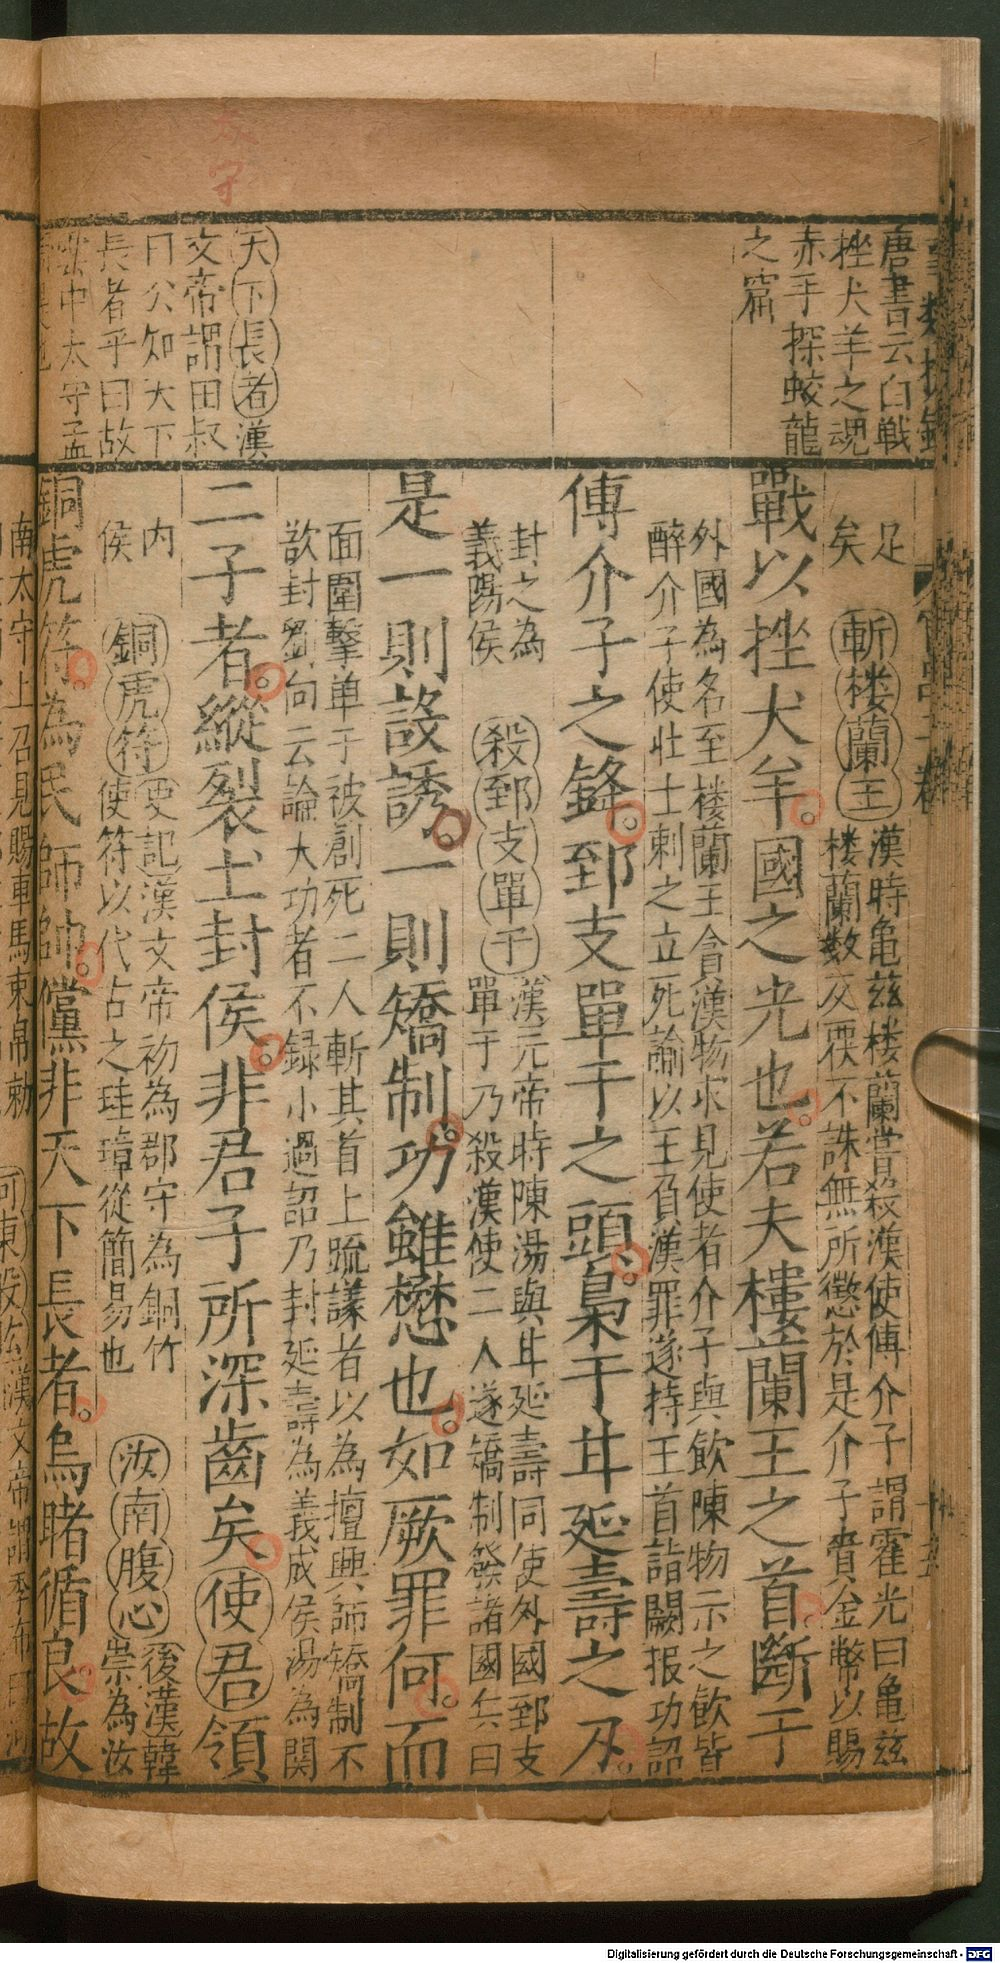 太守
唐書云白戦
挫犬羊之魂
赤手探蛟龍
之窟
天下長者漢
文帝謂田叔
曰公知天下
長者乎曰故
雲中太守孟
足
矣
斬楼蘭王
漢時亀茲楼蘭嘗殺漢使傅介子謂霍光曰亀茲
楼蘭数反覆不誅無所懲於是介子賫金幣以賜
戰以挫犬羊國之光也若夫樓蘭王之首斷于
外國為名至楼蘭王貪漢物求見使者介子與飲陳物示之飲皆
醉介子使壮士刺之立死諭以王負漢罪遂持王首詣闕报功詔
傅介子之鋒郅支單于之頭梟于甘延壽之刃
封之為
義陽侯
殺郅支單于
漢元帝時陳湯與甘延壽同使外國郅支
單于乃殺漢使二人遂矯制發諸國兵四
是一則設誘一則矯制功雖懋也如厥罪何而
面圍擊单于被創死二人斬其首上疏議者以為擅興師矯制不
欲封劉向云論大功者不録小過詔乃封延壽為義成侯湯為関
二子者縱裂土封侯非君子所深齒矣使君領
内
侯
銅虎符
史記漢文帝初為郡守為銅竹
使符以代古之珪璋從簡易也
汝南腹心
後漢韓
崇為汝
銅虎符為民師帥儻非天下長者烏睹循良故
南太守上召見賜車馬束帛勅
河東股肱漢文帝謂季布曰河
Digitalisierung gefördert durch die Deutsche Forschungsgemeinschaft - DFG